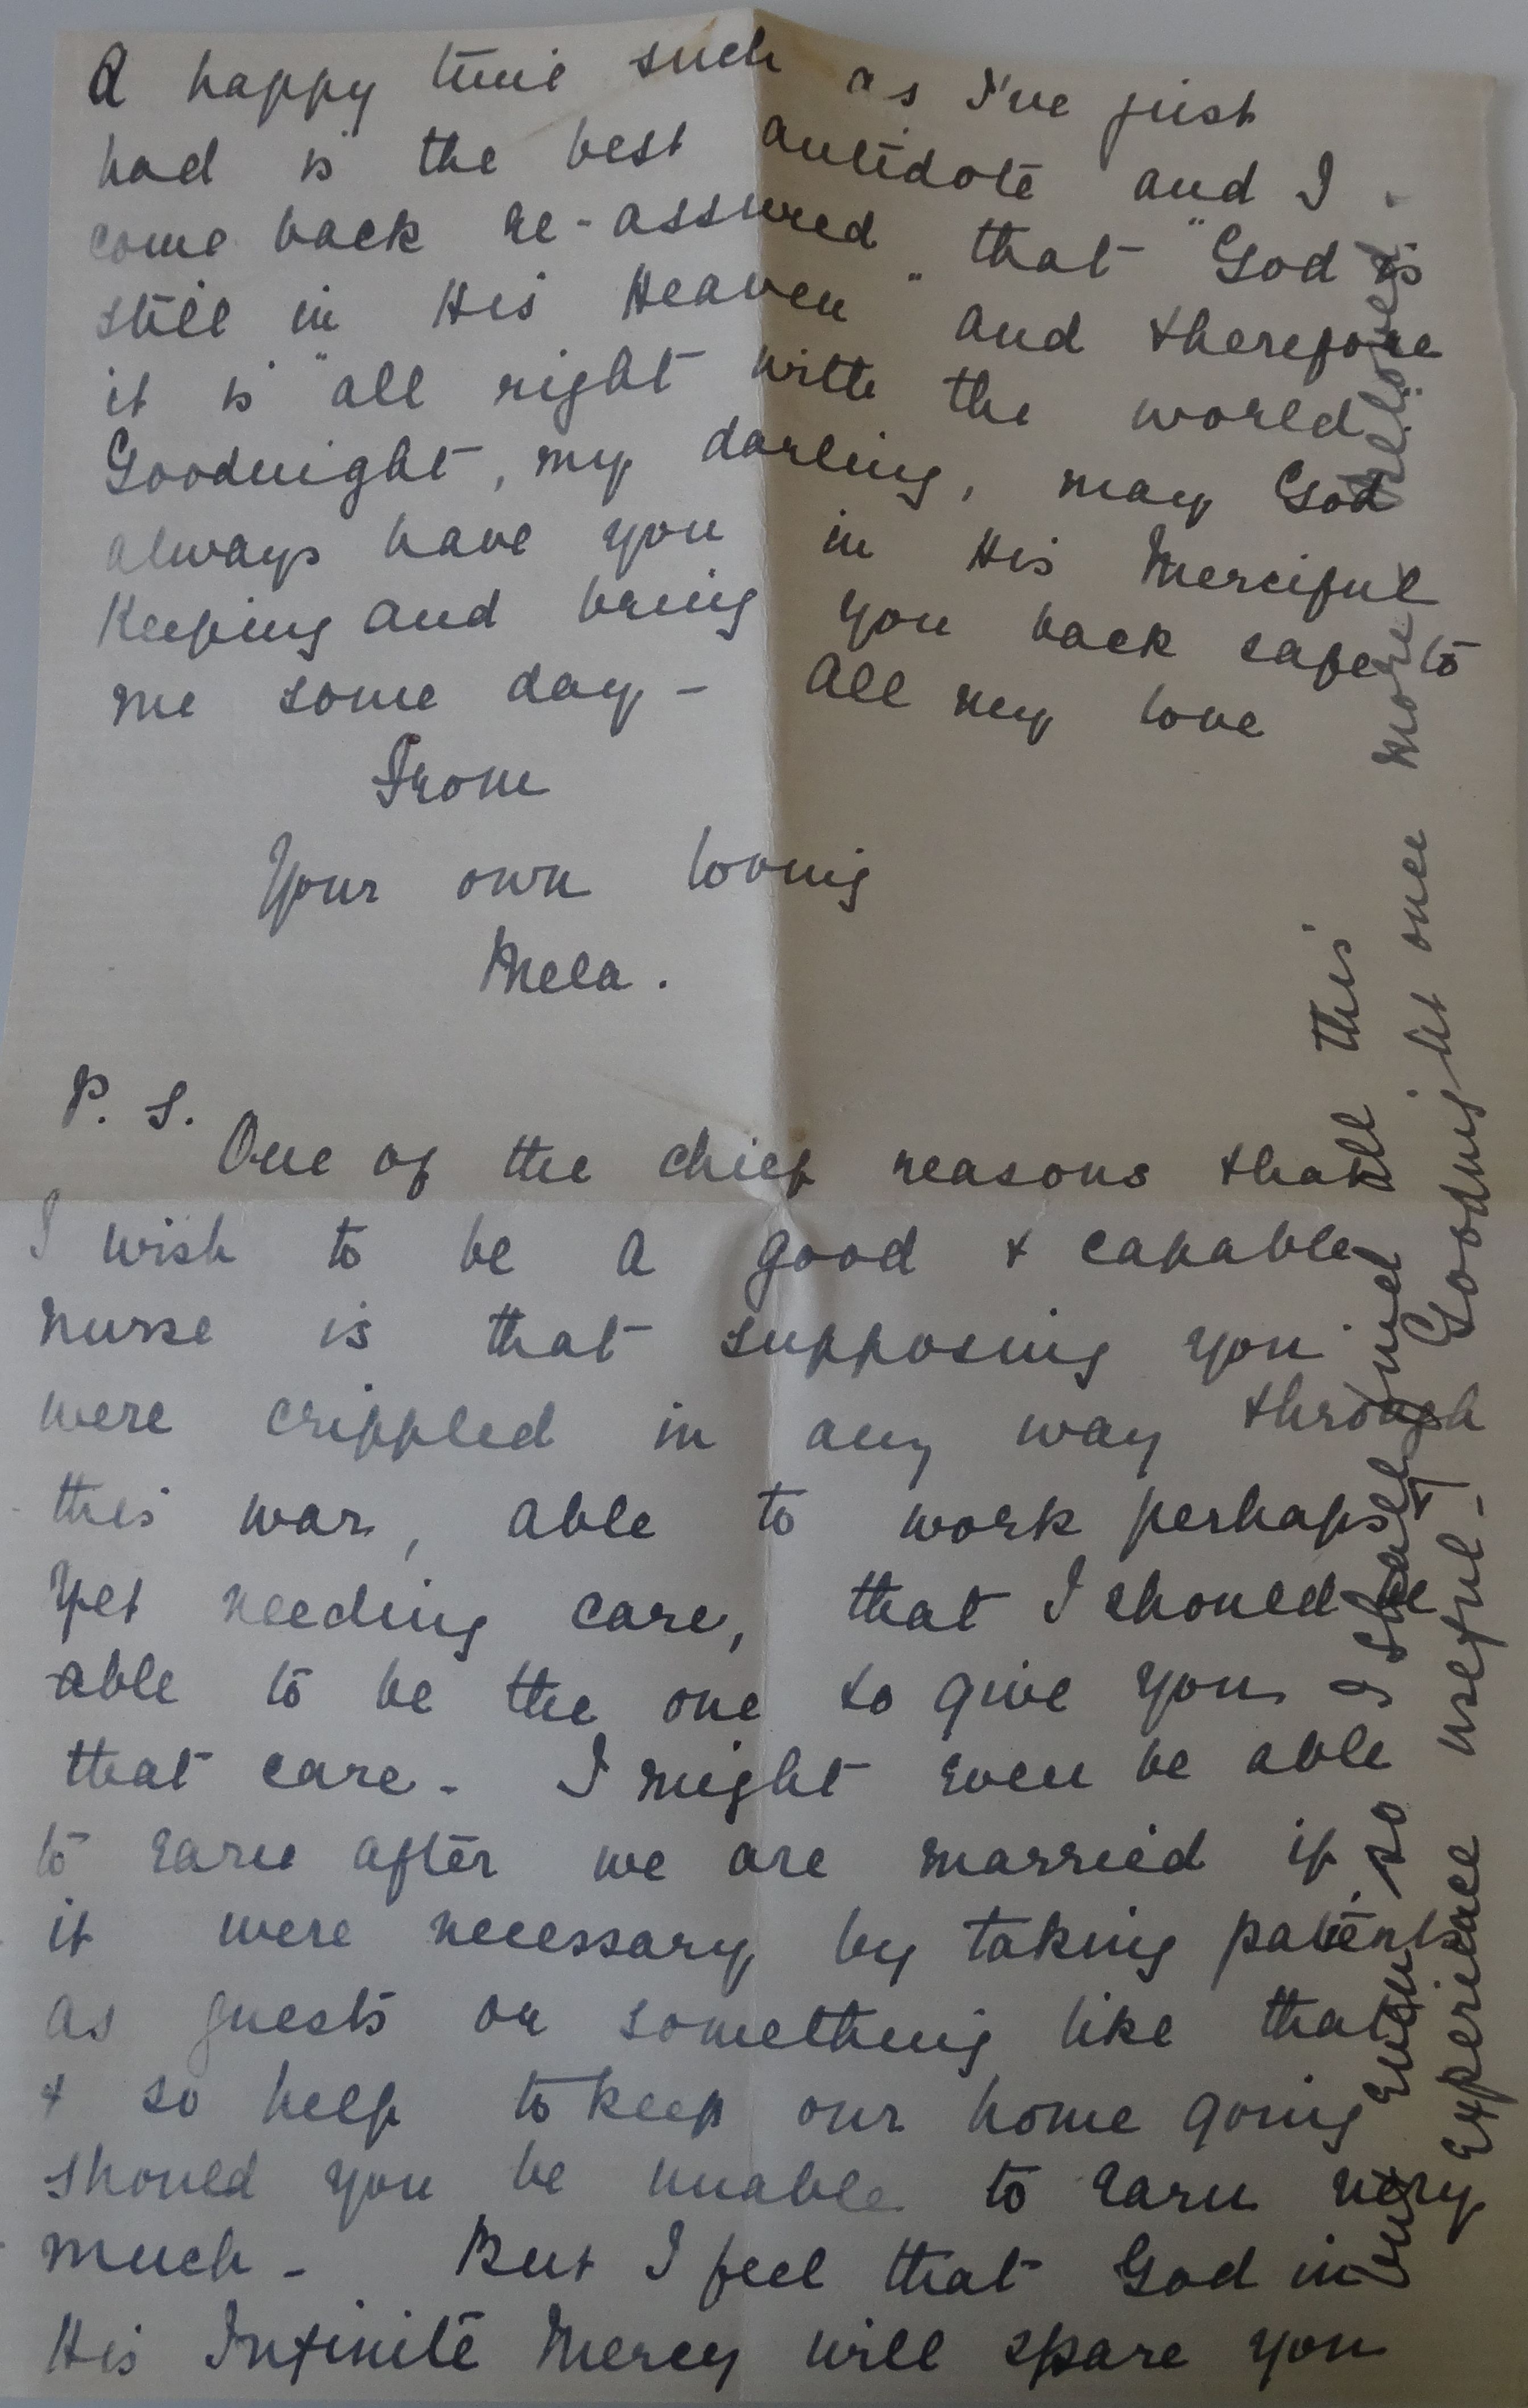 A happy time such as I've just
had is the best antidote and I
come back re-assured that "God is
still in His Heaven" and therefore
it is "all right with the world."
Goodnight, my darling, may God
always have you in His Merciful
Keeping and bring you back safe to
me some day - All my love
From
Your own loving
Mela.
P. S.
One of the chief reasons that
I wish to be a good & capable
nurse is that supposing you
were crippled in any way through
this war, able to work perhaps
yet needing care, that I should be
able to be the one to give you
that care - I might even be able
to earn after we are married if
it were necessary by taking patients
as guests or something like that
& so help to keep our home going
should you be unable to earn very
much - But I feel that God in
His Infinite Mercy will spare you
our Even so I shall find all this
experience useful - Goodnight once more beloved.